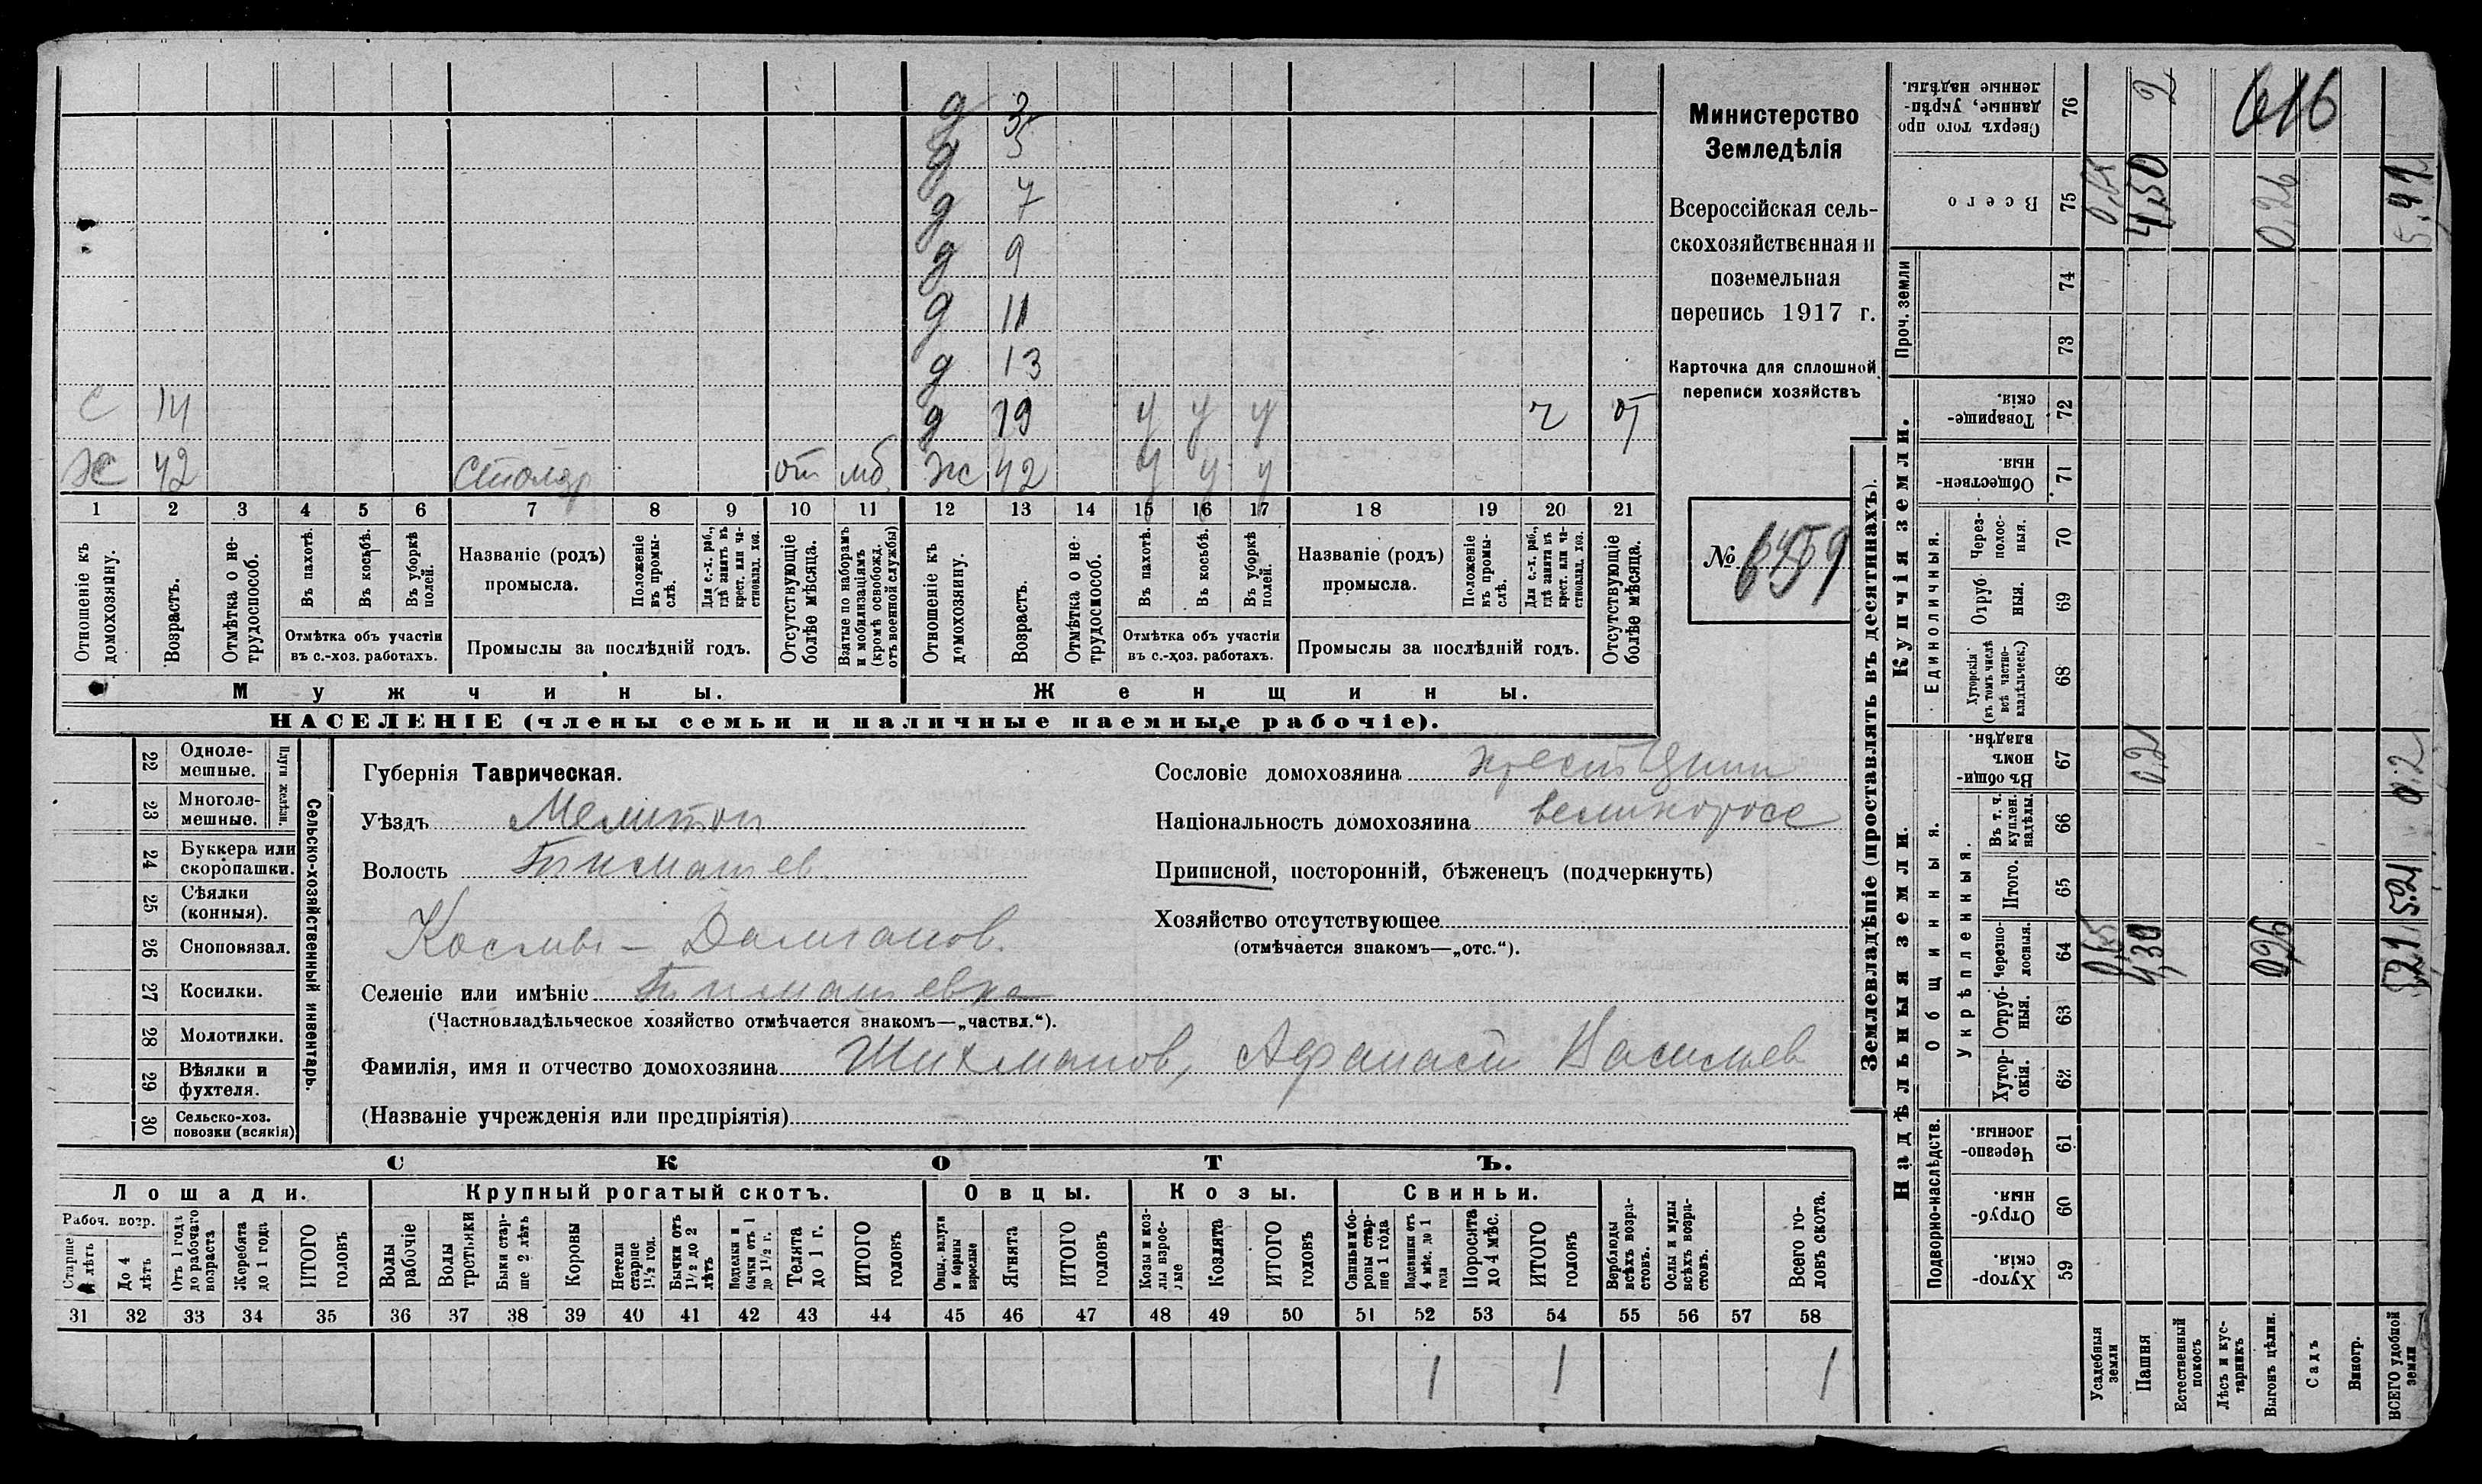 д 3
д 5
д 7
д 9
д 11
д 13
с 14 д 19 у у у ч от
х 42 столяр от мб. ж 42 у у у
1 2 3 4 5 6 7 8 9 10 11 12 13 14 15 16 17 18 19 20 21
Отношеніе къ домохозяину.
Возрастъ.
Отмѣтка о не-трудоспособ.
Въ пахотѣ.
Въ косьбѣ.
Въ уборкѣ полей.
Отмѣтка объ участіи
въ с.-хоз. работахъ.
Названіе (родъ)
промысла.
Положеніе въ промы-слѣ.
Для с.-х. раб., гдѣ занятъ въ крест. или ча-стновлад. хоз.
Промыслы за послѣдній годъ.
Отсутствующіе болѣе мѣсяца.
Взятые по наборамъ и мобилизаціямъ (кромѣ освобожд. отъ военной службы)
Отношеніе къ домохозяину.
Возрастъ.
Отмѣтка о не-трудоспособ.
Въ пахотѣ.
Въ косьбѣ.
Въ уборкѣ полей.
Отмѣтка объ участіи
въ с.-хоз. работахъ.
Названіе (родъ)
промысла.
Положеніе въ промы-слѣ.
Для с.-х. раб., гдѣ занята въ крест. или ча-стновлад. хоз.
Промыслы за послѣдній годъ.
Отсутствующіе болѣе мѣсяца.
Мужчины. Женщины.
НАСЕЛЕНІЕ (члены семьи и наличные наемные рабочіе).
Министерство
Земледѣлія
Всероссійская сель-
скохозяйственная и
поземельная
перепись 1917 г.
Карточка для сплошной
переписи хозяйствъ
№ 6459
Сельско-хозяйственный инвентарь.
Плуги желѣзн.
22 Одноле-мешные.
23 Многоле-мешные.
24 Буккера или скоропашки.
25 Сѣялки (конныя).
26 Сноповязал.
27 Косилки.
28 Молотилки.
29 Вѣялки и фухтеля.
30 Сельско-хоз. повозки (всякія)
Губернія Таврическая.
Уѣздъ Мелитоп
Волость Тимашев
Космы-Дамианов.
Селеніе или имѣніе Тимашевка
(Частновладѣльческое хозяйство отмѣчается знакомъ—„частвл.“).
Фамилія, имя и отчество домохозяина Шихманов, Афанасий Васильев
(Названіе учрежденія или предпріятія)
Сословіе домохозяина крестьянин
Національность домохозяина великоросс
Приписной, посторонній, бѣженецъ (подчеркнуть)
Хозяйство отсутствующее
(отмѣчается знакомъ—„отс.“).
СКОТЪ.
Лошади. Крупный рогатый скотъ. Овцы. Козы. Свиньи.
Рабоч. возр.
Старше 4 лѣтъ
До 4 лѣтъ
Отъ 1 года до рабочаго возраста
Жеребята до 1 года
ИТОГО головъ
Волы рабочіе
Волы третьяки
Быки стар-ше 2 лѣтъ
Коровы
Нетели старше 1½ год.
Бычки отъ 1½ до 2 лѣтъ
Подтелки и бычки отъ 1 до 1½ г.
Телята до 1 г.
ИТОГО головъ
Овцы, валухи и бараны взрослые
Ягнята
ИТОГО головъ
Козы и коз-лы взрос-лые
Козлята
ИТОГО головъ
Свиньи и бо-ровы стар-ше 1 года
Подсвинки отъ 4 мѣс. до 1 года
Поросята до 4 мѣс.
ИТОГО головъ
Верблюды всѣхъ возра-стовъ.
Ослы и мулы всѣхъ возра-стовъ.
Всего го-ловъ скота.
31 32 33 34 35 36 37 38 39 40 41 42 43 44 45 46 47 48 49 50 51 52 53 54 55 56 57 58
1 1 1
Землевладѣніе (проставлять въ десятинахъ).
Надѣльныя земли. Купчія земли. Проч. земли
Подворно-наслѣдств. Общинныя. Единоличныя.
Укрѣпленныя.
59 Хутор-скія.
60 Отруб-ныя.
61 Черезпо-лосныя.
62 Хутор-скія.
63 Отруб-ныя.
64 Черезпо-лосныя. 0,65 4,30
65 Итого.
66 Въ т. ч. куплен. надѣлы.
67 Въ общи-номъ владѣн. 0,2 0,2
68 Хуторскія (въ томъ числѣ всѣ частно-владѣльческ.)
69 Отруб-ныя.
70 Через-полос-ныя.
71 Обществен-ныя.
72 Товарище-скія.
73
74
75 Всего 0,65 4,50 0,26 5,41
76 Сверхъ того про-данные, укрѣп-ленные надѣлы. 2
616
Усадебныя земли
Пашня
Естественный покосъ
Лѣсъ и кус-тарникъ
Выгонъ цѣлин.
Садъ
Виногр.
ВСЕГО удобной земли